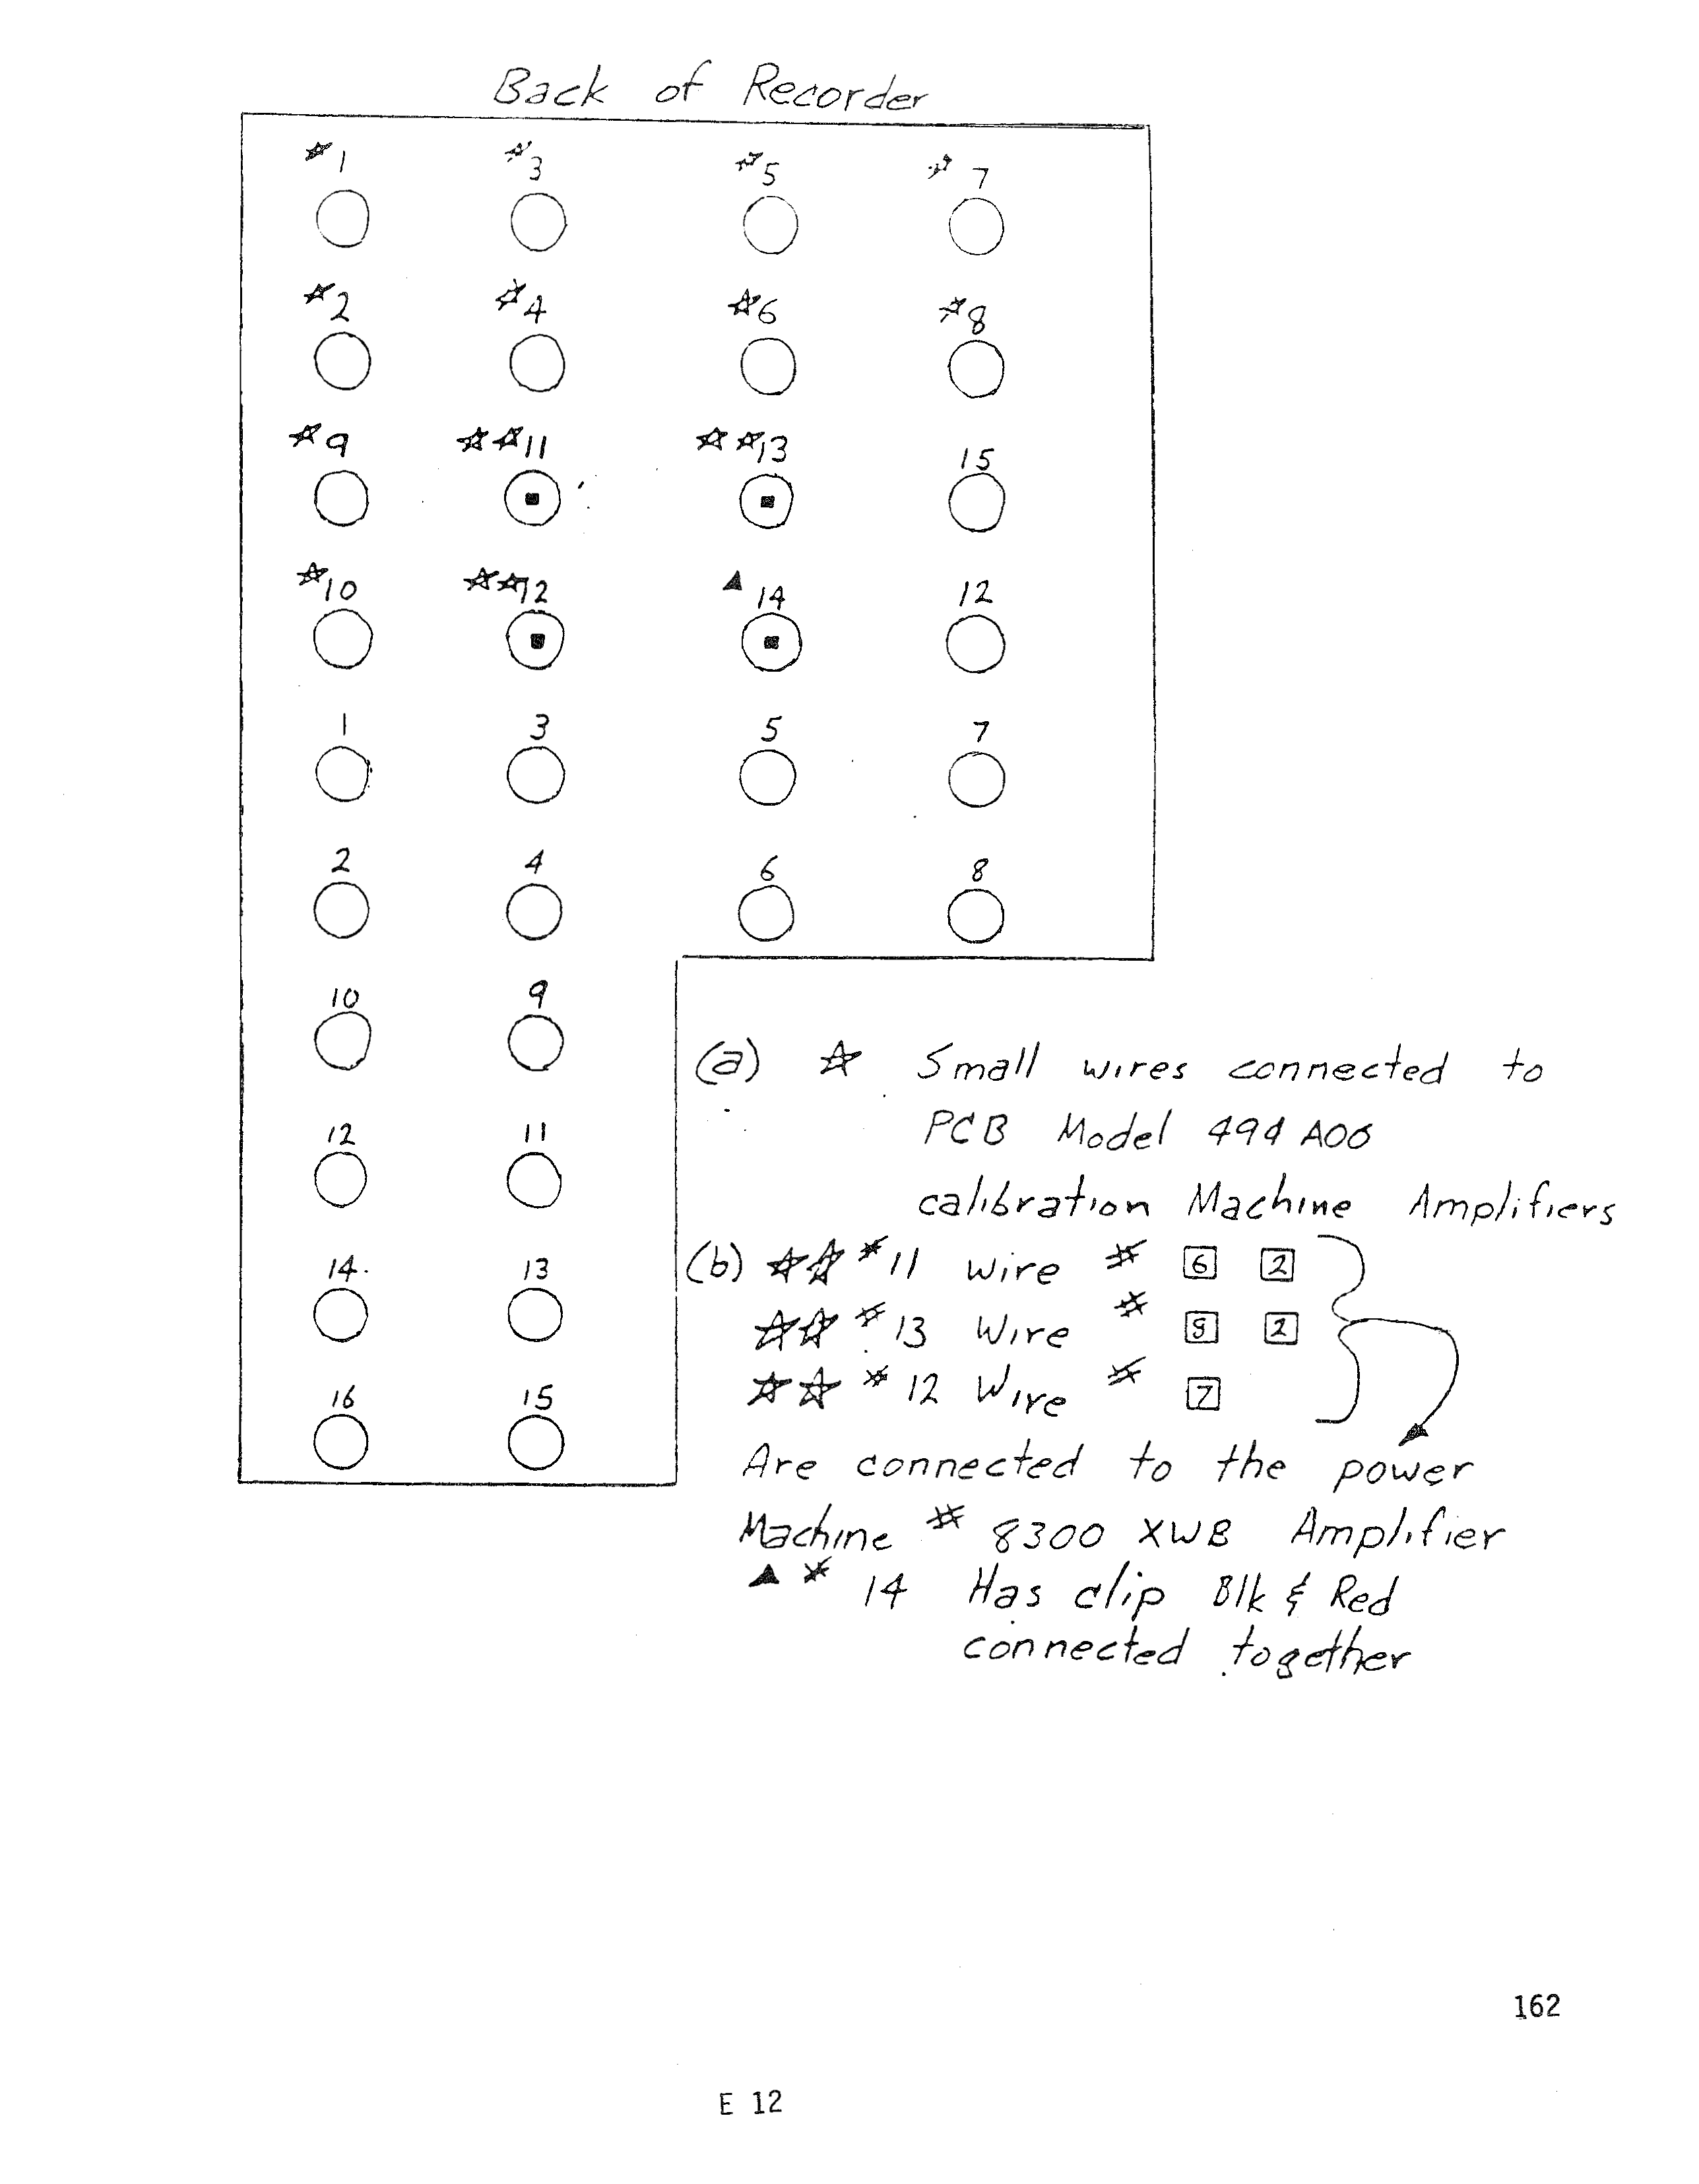 Back of Recorder
☆1 ☆3 ☆5 ☆7
☆2 ☆4 ☆6 ☆8
☆9 ☆☆11 ☆☆13 15
☆10 ☆☆12 ▲14 12
1 3 5 7
2 4 6 8
10 9
12 11
14 13
16 15
(a) ☆ Small wires connected to
PCB Model 494 A06
calibration Machine Amplifiers
(b) ☆☆ #11 Wire # 6 2
☆☆ #13 Wire # 2
☆☆ #12 Wire # 7
Are connected to the power
Machine # 8300 XWB Amplifier
▲ # 14 Has clip Blk & Red
connected together
162
E 12